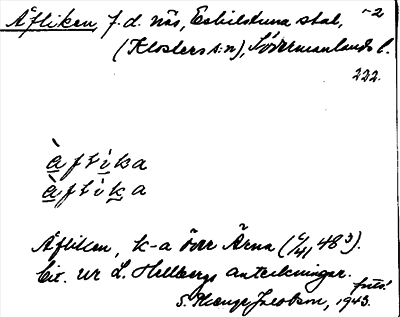 Åfliken, f.d. näs, Eskilstuna stad, -2
(Klosters s:n), Södermanlands l.
222.
à f t i k a
à f t i k a
Åfliken, k-a över Ärna (5/41 48³).
Cit. ur L. Hellbergs anteckningar.
forts!
S. Jacobson, 1943.